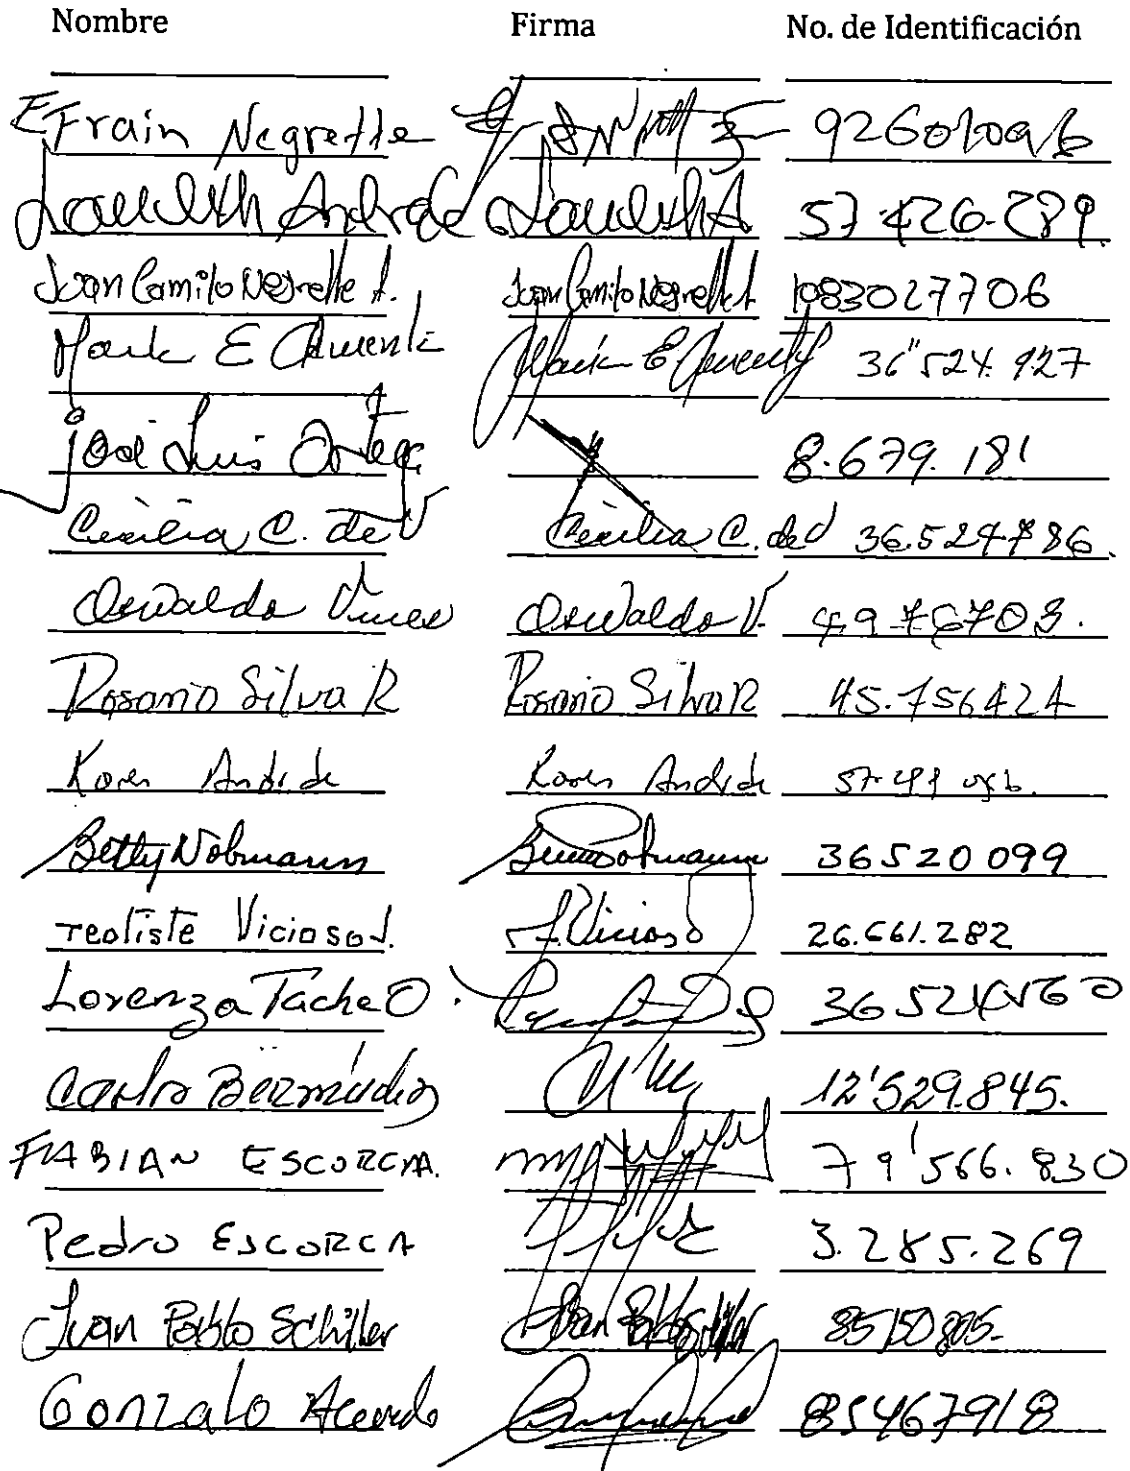 Nombre Firma No. de Identificación
Efrain Negrette
Andrade 57.426.289.
Juan Camilo Negrette A. Juan Camilo Negrette A 1083027706
E 36"524.927
José Luis Ortega 8.679.181
Cecilia C. de V Cecilia C. de V 36.524.786.
Oswaldo Oswaldo V. 4976703.
Rosario Silva R Rosario Silva R 45.756424
Karen Andrade Karen Andrade
Betty Nobmann 36520099
Teotiste Vicioso J. J. Vicioso 26.661.282
Lorenza Tache O.
Carlos Bermúdez 12'529.845.
FABIAN ESCORCIA. 79'566.830
Pedro ESCORCIA 3.285.269
Juan Pablo Schiller Juan Pablo Schiller 85150805-
Gonzalo Acevedo 85467918